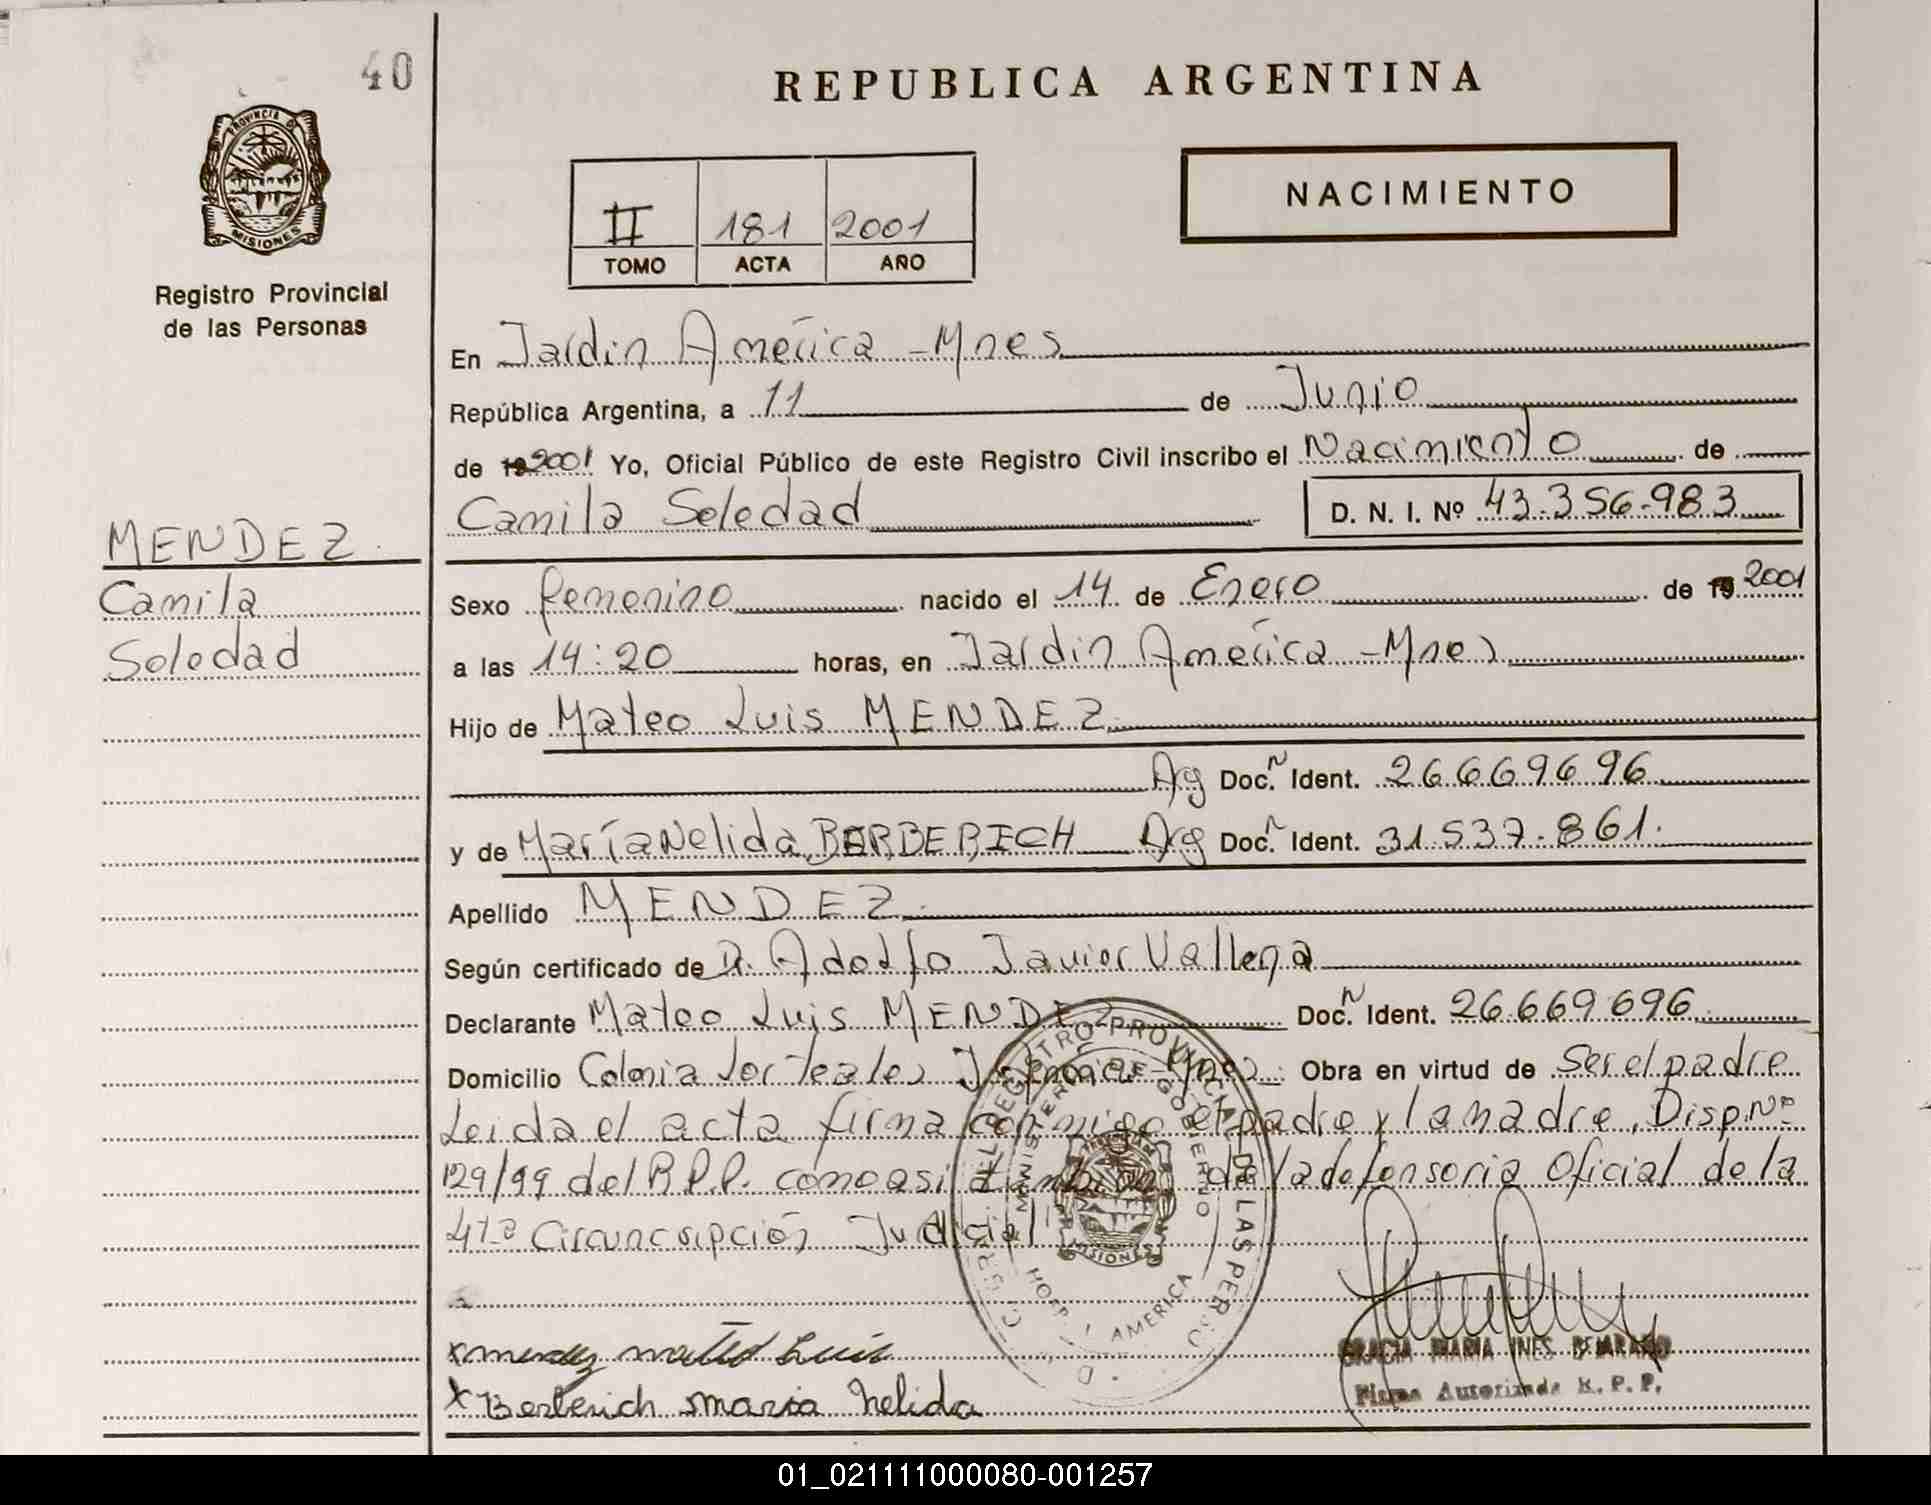 40
REPUBLICA ARGENTINA
PROVINCIA DE
MISIONES
Registro Provincial
de las Personas
II 181 2001
TOMO ACTA AÑO
NACIMIENTO
En Jardin América - Mnes
República Argentina, a 11 de Junio
de 19 2001 Yo, Oficial Público de este Registro Civil inscribo el Nacimiento de
Camila Soledad D. N. I. Nº 43.356.983
MENDEZ
Camila
Soledad
Sexo femenino nacido el 14 de Enero de 19 2001
a las 14:20 horas, en Jardin América - Mnes
Hijo de Mateo Luis MENDEZ
Arg Doc. N Ident. 26669696
y de María Nelida BERBERICH Arg Doc. N Ident. 31.537.861.
Apellido MENDEZ
Según certificado de Dr. Adolfo Javier Vallena
Declarante Mateo Luis MENDEZ Doc. N Ident. 26.669.696
Domicilio Colonia los teales J. América - Mnes Obra en virtud de Ser el padre
Leida el acta firma conmigo el padre y la madre, Disp. Nº
129/99 del R.P.P. como asi tambien de la defensoria Oficial de la
4ta Circuncsipción Judicial
REGISTRO PROVINCIAL DE LAS PERSO
MINISTERIO DE GOBIERNO
AMERICA
MISIONES
x mendez mateo Luis
x Berberich maria Nelida
GRACIA MARIA INES BEJARANO
Firma Autorizada R. P. P.
01_021111000080-001257